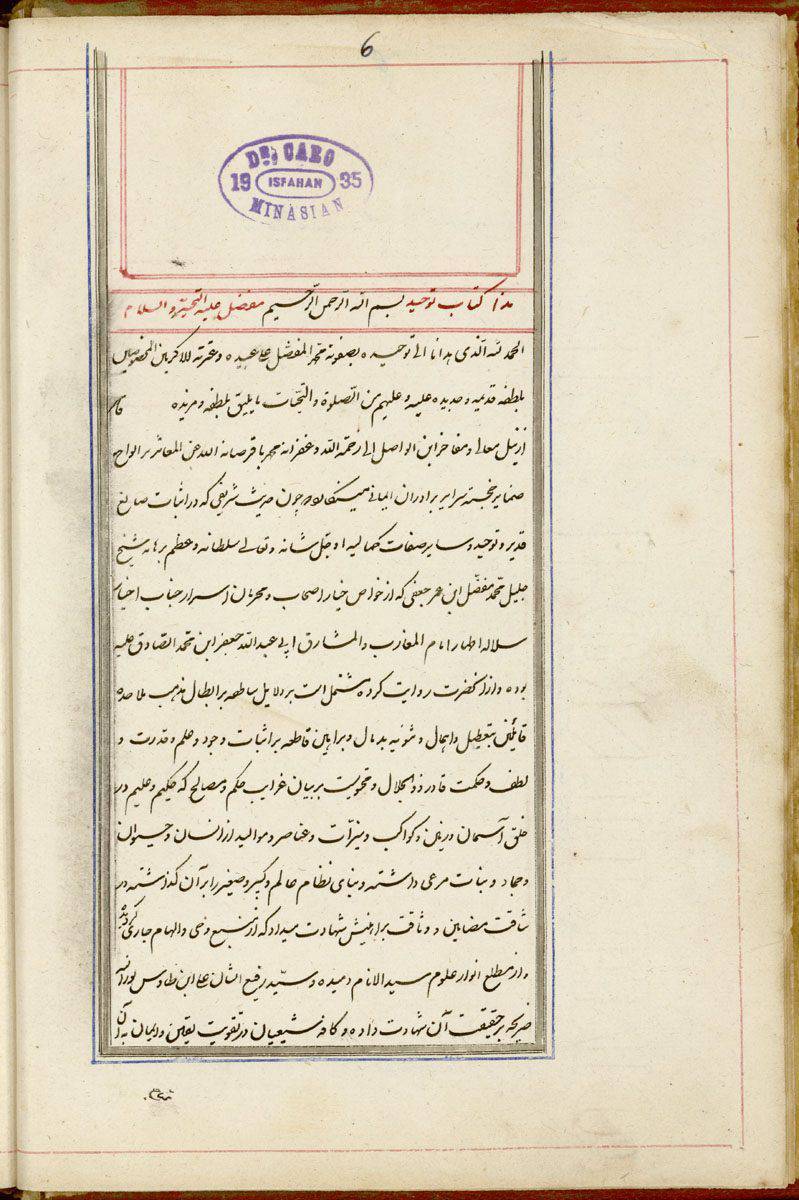 6
Dr. CARO
19 ISFAHAN 35
MINASIAN
هذا كتاب توحيد بسم الله الرحمن الرحيم مفضل عليه التحية و السلام
الحمد لله الذى هدانا الى توحيده بصفوته محمد المفضل على عبيده و عترته الاكرمين المخصوصين
بلطفه قديمه و جديده عليه و عليهم من الصلوة و التحيات ما يليق بلطفه و مزيده
ازنيل معالى و مفاخر ابن الواصل الى رحمة الله و غفرانه محمد باقر صانه الله عن المعاثر بر الواح
ضماير خجسته سراير برادران ايمانى مينگارد چون حديث شريفى كه در اثبات صانع
قدير و توحيد و ساير صفات كماليه او جل شانه و تعالى سلطانه و عظم برهانه شيخ
جليل محمد مفضل ابن عمر جعفى كه از خواص خيار اصحاب و محرمان اسرار جناب اخيار
سلاله اطهار امام المغارب و المشارق ابى عبد الله جعفر ابن محمد الصادق عليه
بوده و از انحضرت روايت كرده مشتمل است بر دلايل ساطعه بر ابطال مذهب ملاحده
قائلين بتعطيل و اهمال و ثنويه بدمال و براهين قاطعه بر اثبات وجود و علم و قدرت و
لطف و حكمت قادر ذو الجلال و محتويست بر بيان غرايب حكم و مصالح كه حكيم و عليم در
خلق آسمان و زمين و كواكب و نيرات و عناصر و مواليد از انسان و حيوان
و جماد و نبات مرعى داشته و بناى نظام عالم كبير و صغير را بر آن گذاشته در
ثاقت مضامين و وثاقت براهينش شهادت ميداد كه از منبع وحى و الهام جارى گرديده
و از مطلع انوار علوم سيد الانام دميده و سيد رفيع الشان على ابن طاوس نور الله
ضريحه بر حقيقت آن شهادت داده و كافه شيعيان در تقويت يقين و ايمان به آن